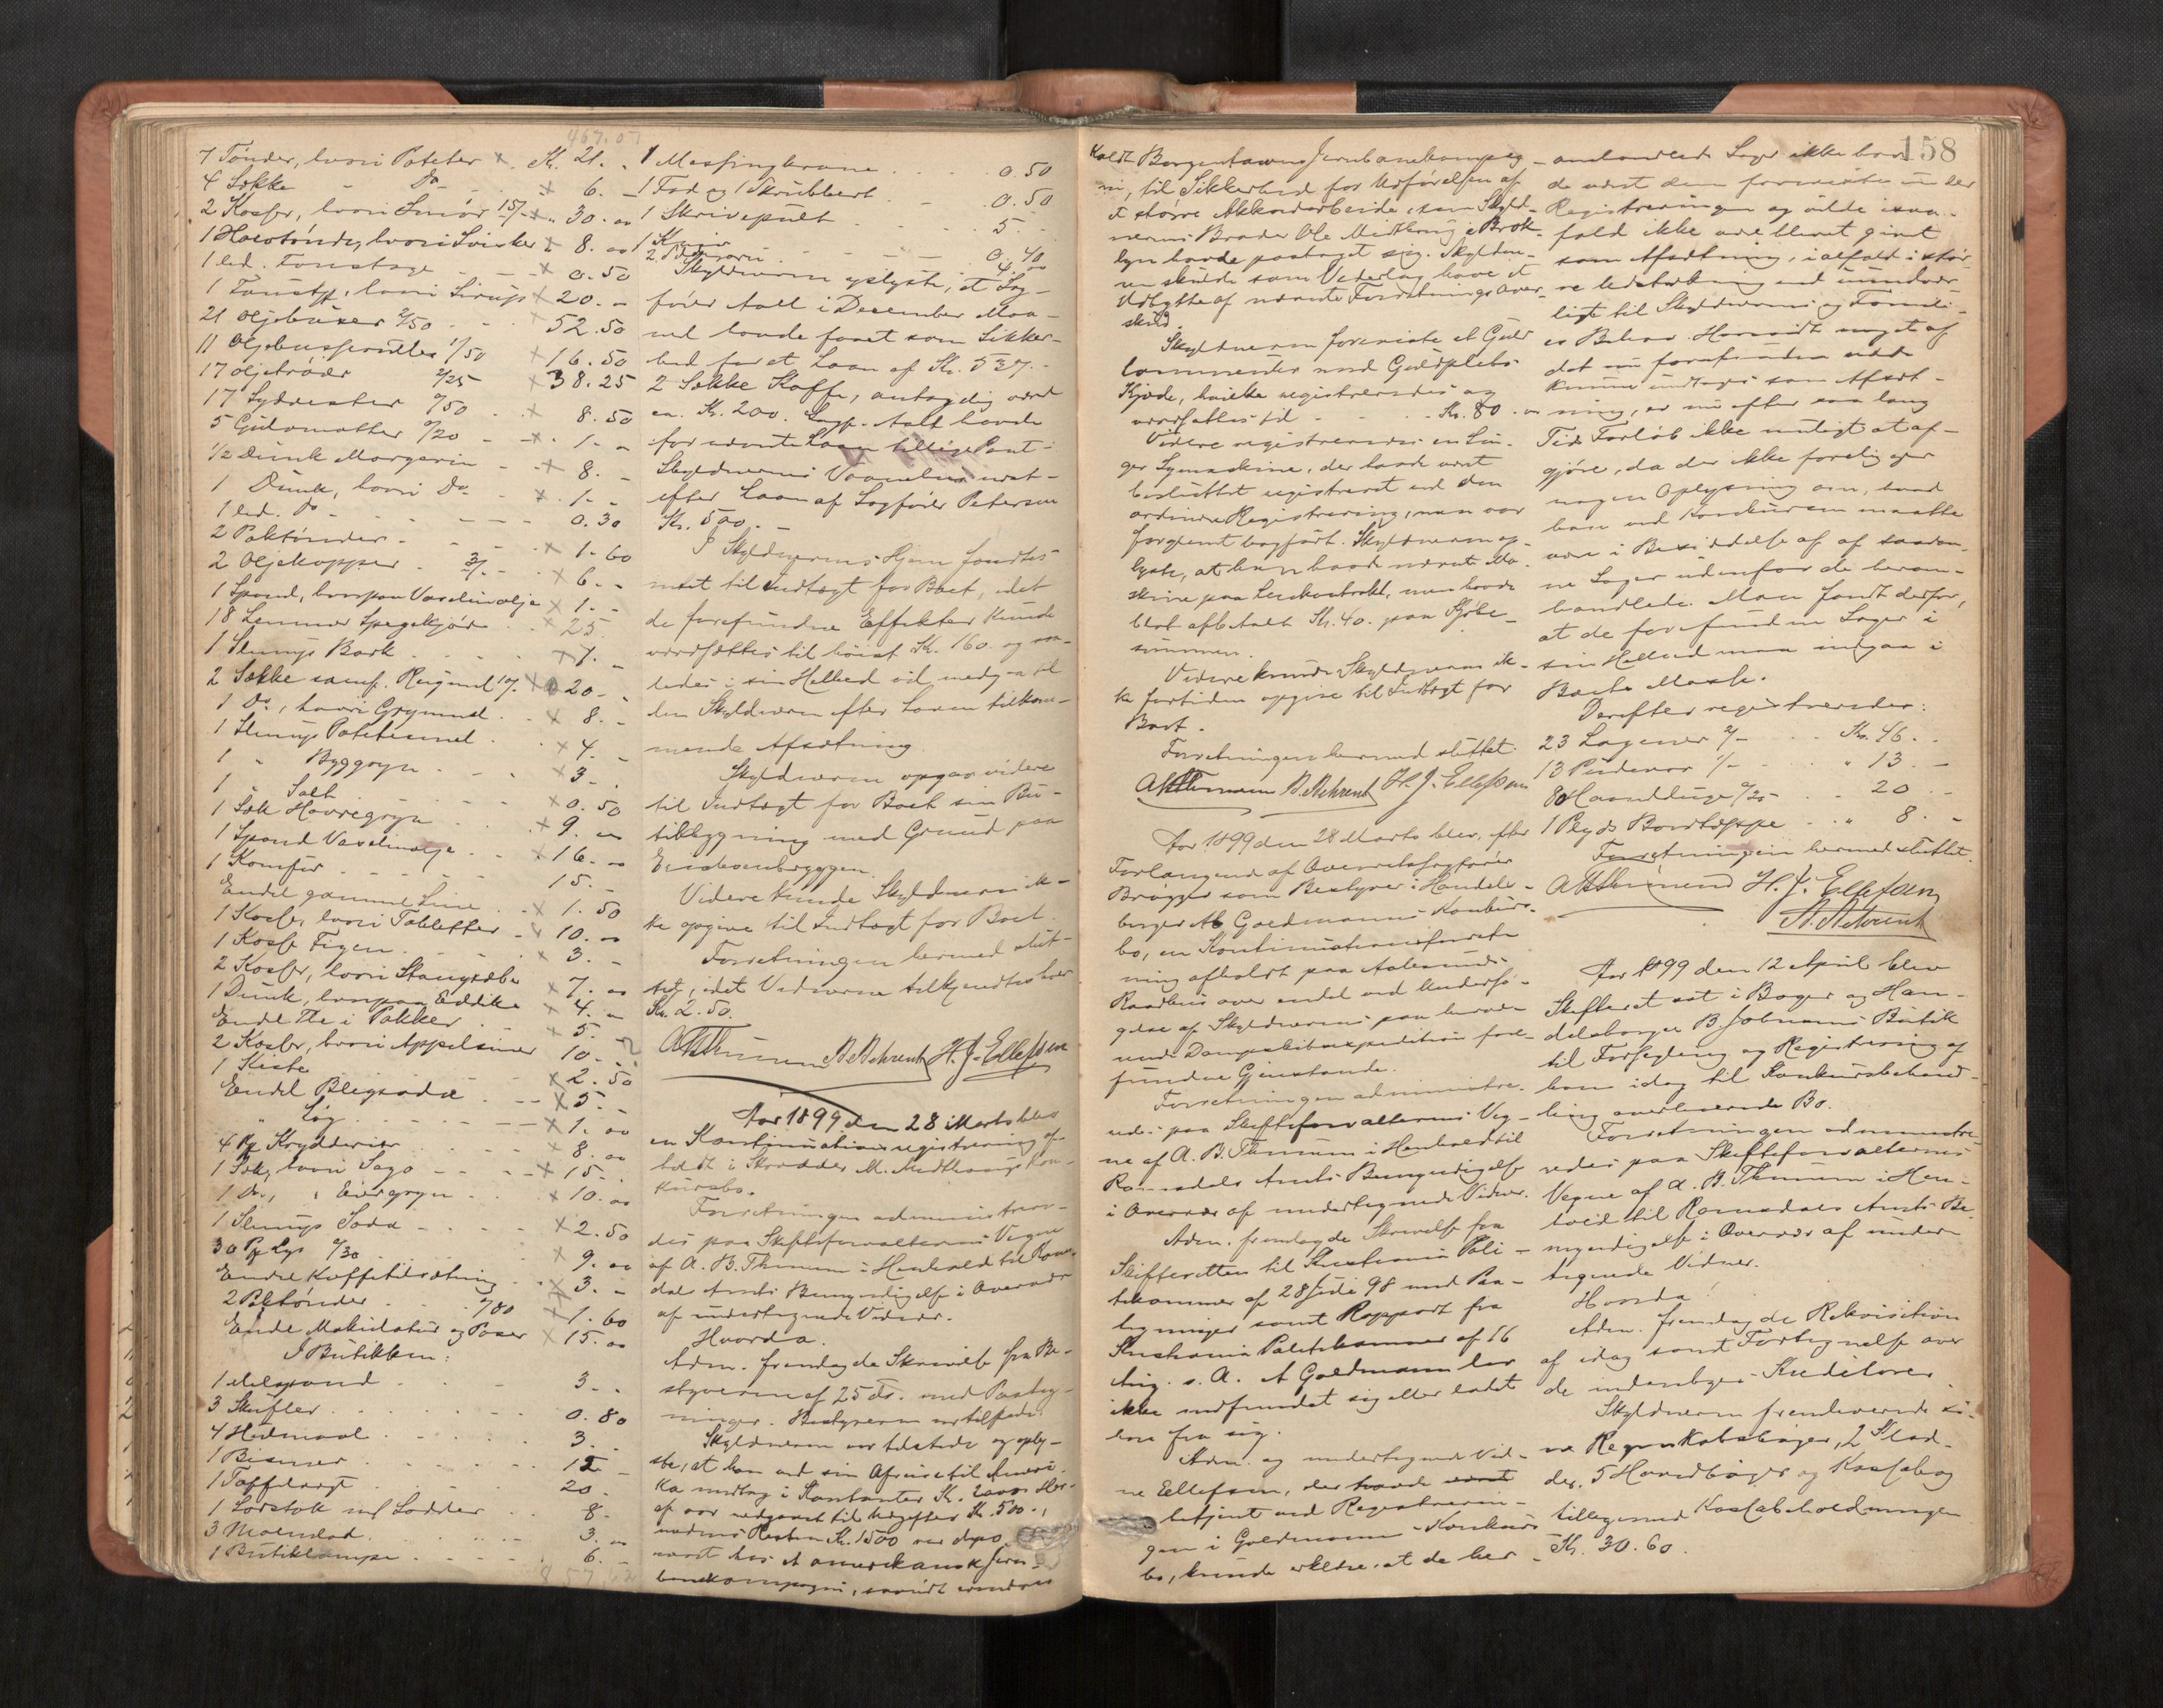 467.07
7 Tønder, hvori Poteter × Kr. 21. -
4 Sække - Do × 6. -
2 Kasser, hvori Smør 15/- × 30. 00
1 Halvtønde, hvori Svinker × 8. 00
1 led. Fonstage × 0.50
1 Fonstage, hvori Sirup × 20. -
21 Oljebuxer 2/50 × 52.50
11 Oljebusserulles 1/50 × 16.50
17 Oljetrøier 2/25 × 38.25
17 Sydvester 0/50 × 8.50
5 Gulvmatter 0/20 × 1. -
1/2 Dunk Margarin × 8. -
1 Dunk, hvori Do × 1. -
1 led. Do 0.30
2 Paktønder × 1.60
2 Oljekapper 3/- × 6. -
1 Spand, hvorpaa Vaselinolje × 1. -
18 Lemmer Spegekjød × 25.
1 Slump Bark × 7. -
2 Sække sams. Rugmel 10/- × 20. -
1 Do, hvori Grynmel × 8. -
1 Slump Potetesmel × 4. -
1 " Byggryn × 3. -
1 " Salt × 0.50
1 Sæk Havregryn × 9. 00
1 Spand Vaselinolje × 16. 00
1 Komfur 15. -
Endel gammel Line × 1.50
1 Kasse, hvori Tabletter × 10. 00
1 Kasse Figen × 3. -
2 Kasser, hvori Stangsæbe × 7. 00
1 Dunk, hvorpaa Eddike × 4. 00
Endel The i Pakker × 5. -
2 Kasser, hvori Appelsiner 10. -
1 Kiste × 2.50
Endel Blegsoda × 5. -
" Løg × 1. 00
4 Pk Krydderier × 8. 00
1 Sæk, hvori Sago × 15.
1 Do, " Ertegryn × 10. 00
1 Slump Soda × 2.50
30 Pk Lys 0/30 × 9. 00
Endel Kaffetilsætning × 3. -
2 Paktønder 0/80 × 1.60
Endel Makulatur og Poser × 15. 00
I Butikken:
1 Melspand 3. -
3 Skufler 0.80
4 Hulmaal 3. -
1 Bismer 12 -
1 Taffelvægt 20. -
1 Lodstok m/ Lodder 8. -
3 Maalelod 3. 00
1 Butiklampe 6. -
1 Messingkrane 0.50
1 Fad og 1 Skrubbert 0.50
1 Skrivepult 5. -
1 Kniv 0.40
2 4.00
Skyldneren oplyste, at Sag-
fører Aall i December Maa-
ned havde faaet som Sikker-
hed for et Laan af Kr. 537.-
2 Sække Kaffe, antagelig værd
ca. Kr. 200. Sagf. Aall havde
for nævnte Laan tillige Pant i
Skyldnerens Varelager næst-
efter Laan af Sagfører Petersen
Kr. 500. -
I Skyldnerens Hjem fandtes
intet til Indtægt for Boet, idet
de forefundne Effekter kunde
værdsættes til høist Kr. 160. og saa-
ledes i sin Helhed vil medgaa til
den Skyldneren efter Loven tilkom-
mende Afsætning.
Skyldneren opgav videre
til Indtægt for Boet sin Bu-
tikbygning med Grund paa
Videre kunde Skyldneren ik-
ke opgive til Indtægt for Boet.
Forretningen hermed slut-
tet, idet Vidnerne tilkjendtes hver
Kr. 2.50.
A B Thimem A. Behrent H. J. Ellefsen
Aar 1899 den 28 Marts blev
en Kontinuationsregistrering af-
holdt i Skrædder M. Midthaugs Kon-
kursbo.
Forretningen administrere-
des paa Skifteforvalterens Vegne
af A. B. Thimem i Henhold til Roms-
dals Amts Bemyndigelse i Overvær
af undertegnede Vidner.
Hvorda.
Adm. fremlagde Skrivelse fra Be-
styreren af 25 ds. med Paateg-
ninger. Bestyreren var tilstede.
Skyldneren var tilstede og oply-
ste, at han ved sin Afreise til Ameri-
ka medtog i Kontanter Kr. 2000. Her-
af var medgaaet til Udgifter Kr. 500.,
medens Resten Kr. 1500 var depo-
neret hos et amerikansk Jern-
banekompagni, saavidt erindres
158
kaldt Bergentawng Jernbanekompag-
ni, til Sikkerhed for Udførelsen af
et større Akkordarbeide, som Skyld-
nerens Broder Ole Midthaug i Brok-
lyn havde paataget sig. Skyldne-
ren skulde som Vederlag have et
Udbytte af nævnte Forretnings Over-
skud.
Skyldneren foreviste et Guld
lommeuhr med Guldplets
Kjæde, hvilke registreredes og
værdsattes til Kr. 80. 00
Videre registreredes en Sin-
ger Symaskine, der havde været
besluttet registreret ved den
ordinære Registrering, men var
forglemt bogført. Skyldneren op-
lyste, at han havde nævnte Ma-
skine paa Leiekontrakt, men havde
blot afbetalt Kr. 40. paa Kjøbe-
summen.
Videre kunde Skyldneren ik-
ke fortiden opgive til Indtægt for
Boet.
Forretningen hermed sluttet.
A B Thimem A. Behrent H. J. Ellefsen
Aar 1899 den 28 Marts blev, efter
Forlangende af Overretssagfører
Brügger som Bestyrer i Handels-
borger Ab Goldmanns Konkurs-
bo, en Kontinuationsforret-
ning afholdt paa Aalesunds
Raadhus over endel ved Undersø-
gelse af Skyldnerens paa herva-
rende Dampskibsexpedition fore-
fundne Gjenstande.
Forretningen administre-
redes paa Skifteforvalterens Veg-
ne af A. B. Thimem i Henhold til
Romsdals Amts Bemyndigelse
i Overvær af undertegnede Vidner.
Adm. fremlagde Skrivelse fra
Skifteretten til Kristiania Poli-
tikammer af 28 Juli 98 med Paa-
tegninger samt Rapport fra
Kristiania Politikammer af 16
Aug. s. A. A Goldmann har
ikke indfundet sig eller ladet
høre fra sig.
Adm. og undertegnede Vid-
ne Ellefsen, der havde været
betjent ved Registrerin-
gen i Goldmanns Konkurs-
bo, kunde erklære, at de her
omhandlede Sager ikke hav-
de været dem foreviste under
Registreringen og vilde isaa-
fald ikke være blevet givet
som Afsætning, i alfald i stør-
re Udstrækning end uundvær-
ligt til Skyldnerens og Famili-
es Behov. Hvorvidt noget af
det nu forefundne vilde
kunne undtages som Afsæt-
ning, er nu efter saa lang
Tids Forløb ikke muligt at af-
gjøre, da der ikke foreligger
nogen Oplysning om, hvad
han ved Konkursen maatte
være i Besiddelse af af saadan-
ne Sager udenfor de heromhandlede. Man fandt derfor,
at de forefundne Sager i
sin Helhed maa indgaa i
Boets Masse.
Derefter registreredes:
23 Lagener 2/- Kr. 46. -
13 Pudevar 1/- " 13. -
80 Haandduge 0/25 20 -
1 Plyds Bordteppe " 8. -
Forretningen hermed sluttet.
A B Thimem H. J. Ellefsen
A. Behrent
Aar 1899 den 12 April blev
Skifteret sat i Borger og Han-
delsborger B. Johnsens Butik
til Forsegling og Registrering af
hans idag til Konkursbehand-
ling overleverede Bo.
Forretningen administre-
redes paa Skifteforvalterens
Vegne af A. B. Thimem i Hen-
hold til Romsdals Amts Be-
myndigelse i Overvær af under-
tegnede Vidner.
Hvorda!
Adm. fremlagde Rekvisition
af idag samt Fortegnelse over
de indenbyes Kreditorer.
Skyldneren fremleverede si-
ne Regnskabsbøger, 2 Klad-
der, 5 Hovedbøger og Kassebog
tilligemed Kassabeholdningen
Kr. 30.60.